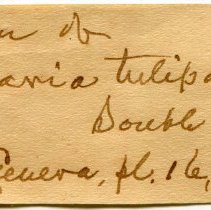 of
aria tulipa
Double
Geneva, pl. 16,